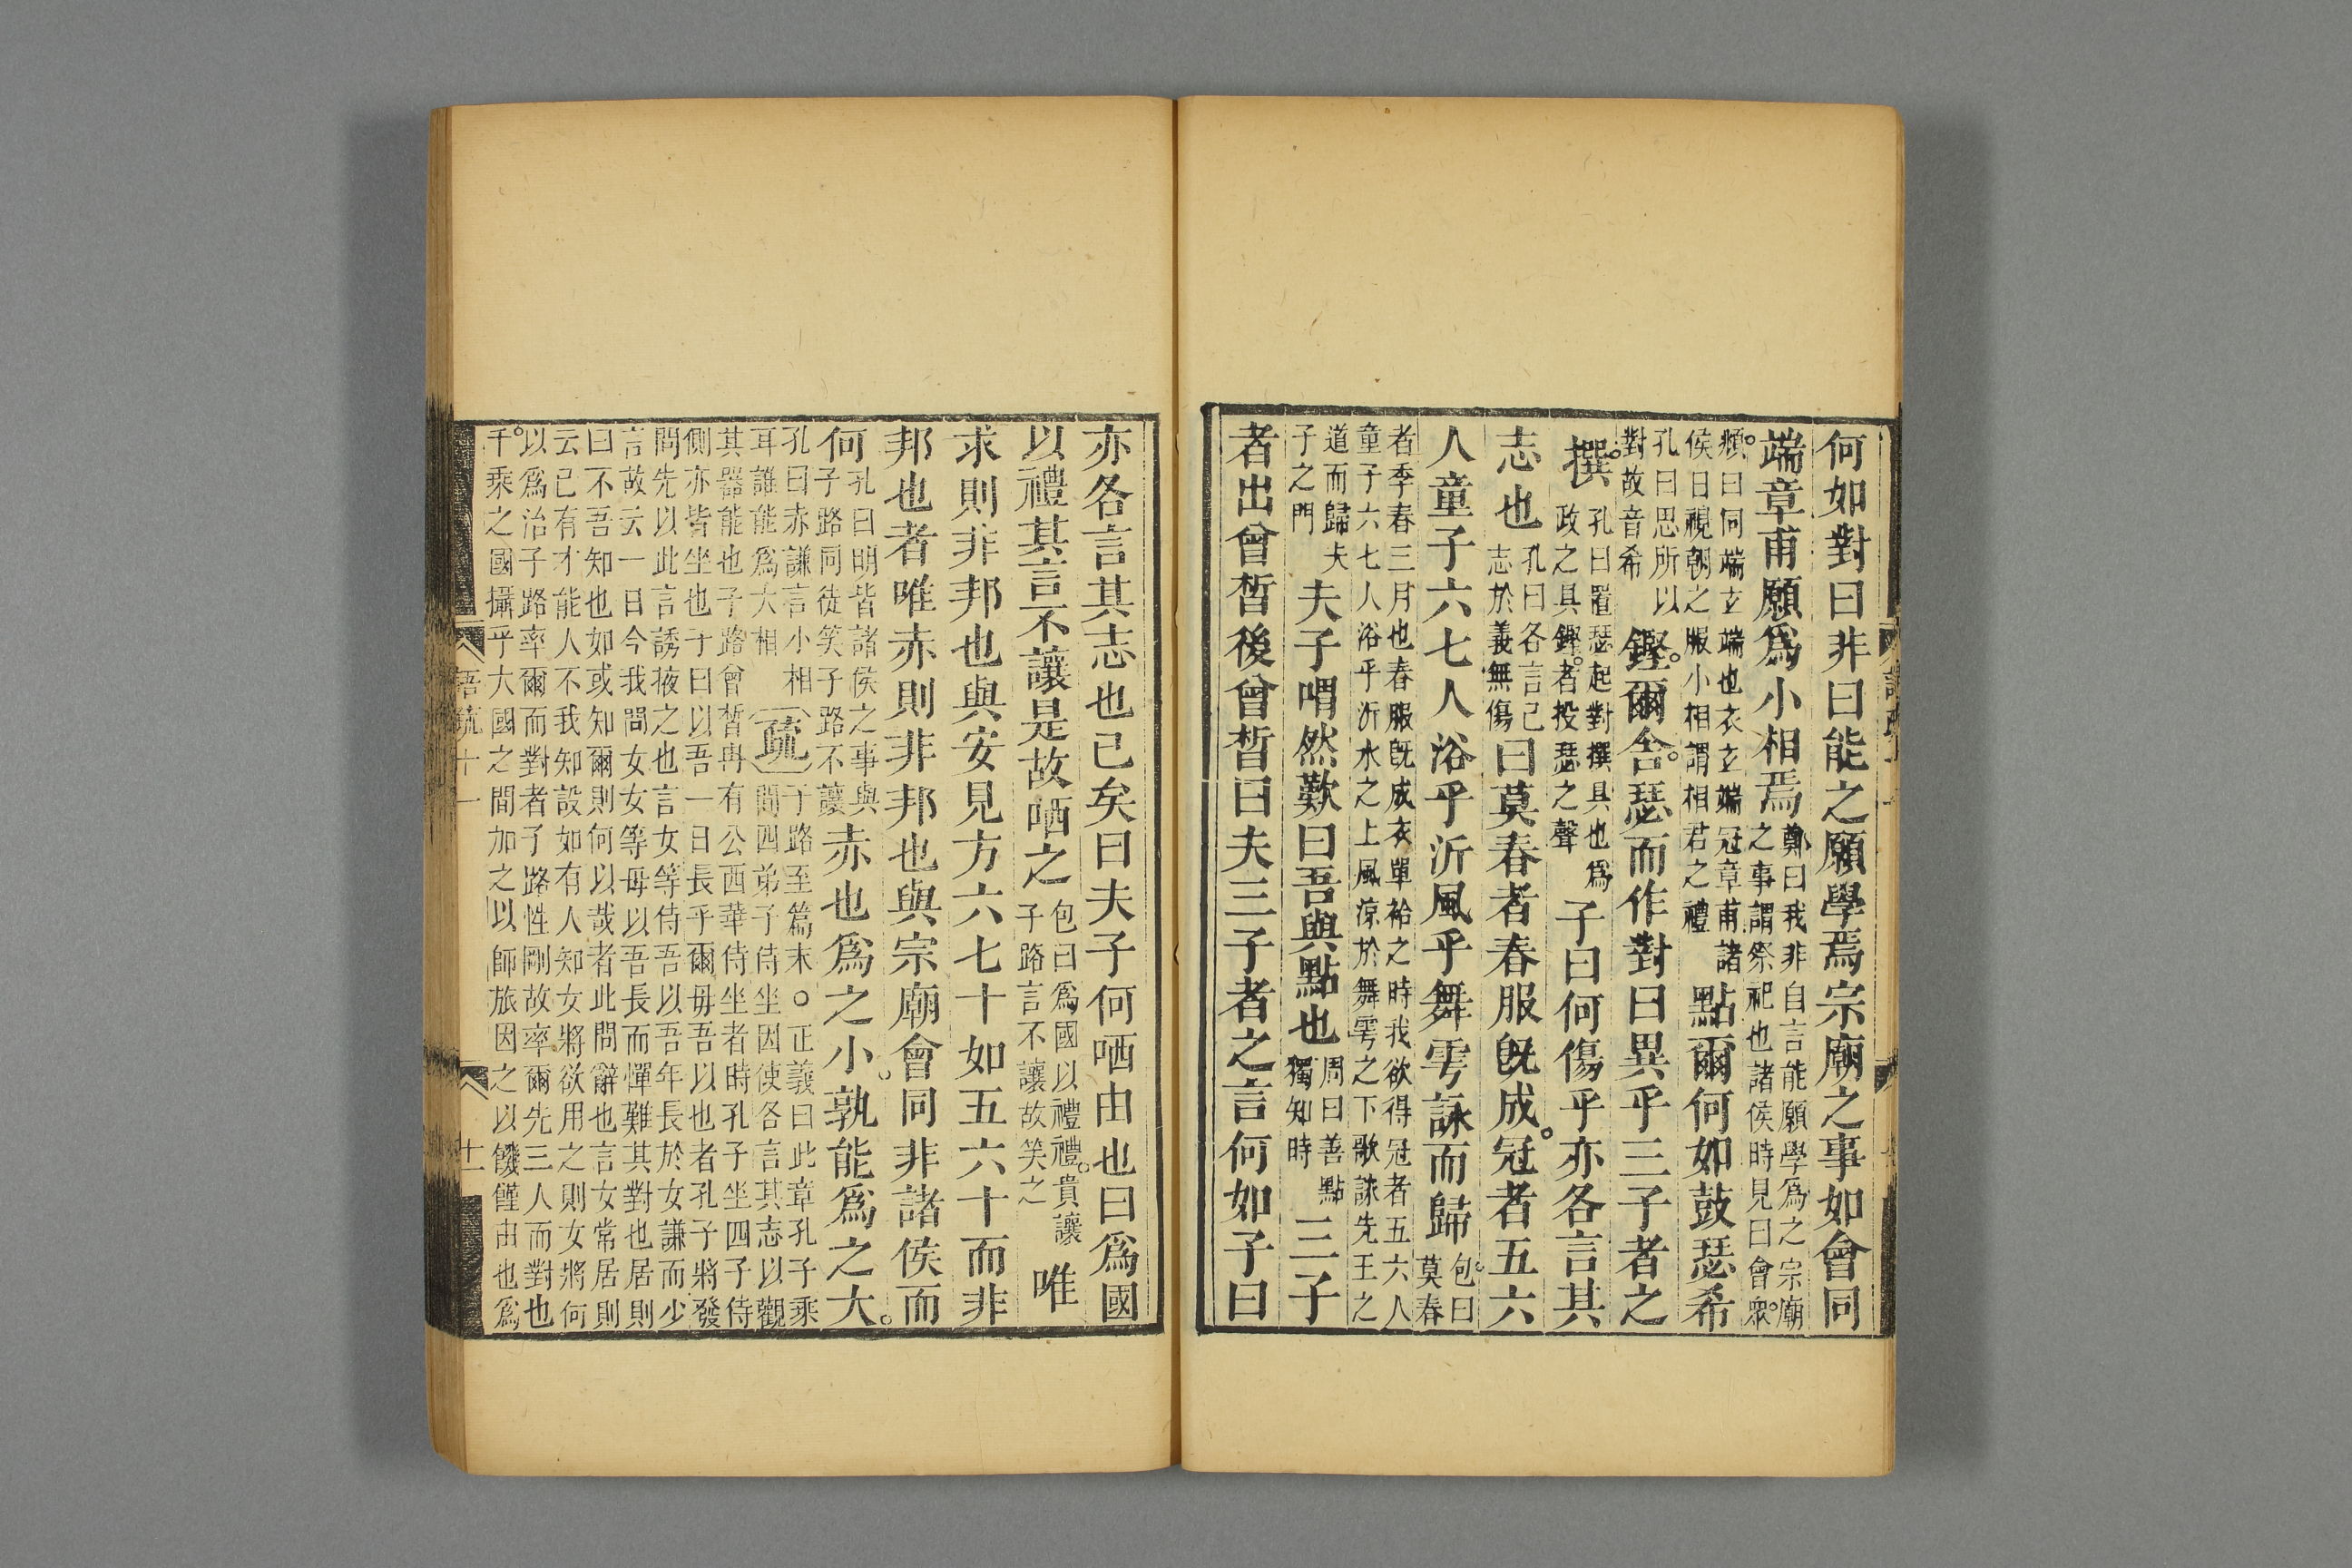 何如對曰非曰能之願學焉宗廟之事如會同
端章甫願爲小相焉鄭曰我非自言能願學爲之宗廟之事謂祭祀也諸侯時見曰會衆
頫曰同端玄端也衣玄端冠章甫諸侯日視朝之服小相謂相君之禮點爾何如鼓瑟希
孔曰思所以對故音希鏗爾舍瑟而作對曰異乎三子者之
撰孔曰置瑟起對撰具也爲政之具鏗者投瑟之聲子曰何傷乎亦各言其
志也孔曰各言己志於義無傷曰莫春者春服旣成冠者五六
人童子六七人浴乎沂風乎舞雩詠而歸包曰莫春
者季春三月也春服旣成衣單袷之時我欲得冠者五六人童子六七人浴乎沂水之上風涼於舞雩之下歌詠先王之
道而歸夫子之門夫子喟然歎曰吾與點也周曰善點獨知時三子
者出曾晳後曾晳曰夫三子者之言何如子曰
亦各言其志也已矣曰夫子何哂由也曰爲國
以禮其言不讓是故哂之包曰爲國以禮禮貴讓子路言不讓故笑之唯
求則非邦也與安見方六七十如五六十而非
邦也者唯赤則非邦也與宗廟會同非諸侯而
何孔曰明皆諸侯之事與子路同徒笑子路不讓赤也爲之小孰能爲之大
孔曰赤謙言小相耳誰能爲大相疏子路至篇末○正義曰此章孔子乘間四弟子侍坐因使各言其志以觀
其器能也子路曾晳冉有公西華侍坐者時孔子坐四子侍
側亦皆坐也子曰以吾一日長乎爾毋吾以也者孔子將發
問先以此言誘掖之也言女等侍吾以吾年長於女謙而少
言故云一日今我問女女等毋以吾長而憚難其對也居則
曰不吾知也如或知爾則何以哉者此問辭也言女常居則
云已有才能人不我知設如有人知女將欲用之則女將何
以爲治子路率爾而對者子路性剛故率爾先三人而對也
千乘之國攝乎大國之間加之以師旅因之以饑饉由也爲
語疏十一
十一